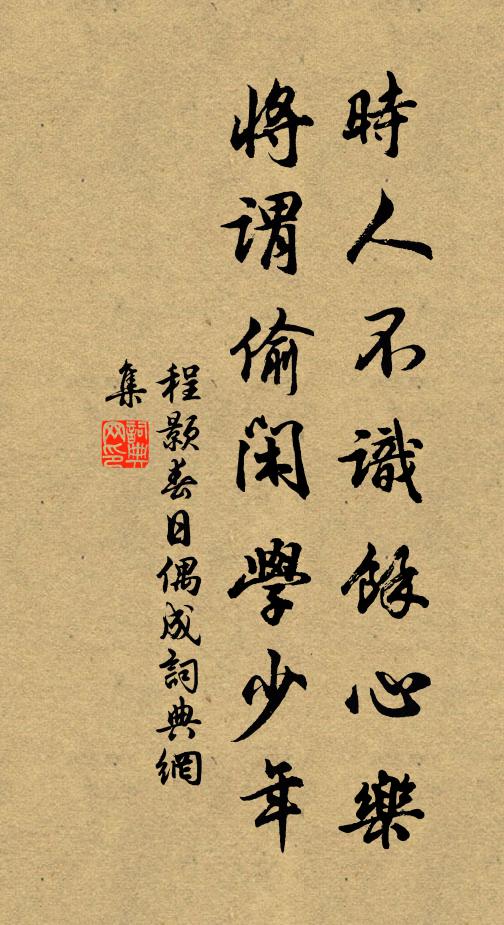 時人不識餘心樂
將謂偷閑學少年
程顥春日偶成詞典網
集
詞典
网印